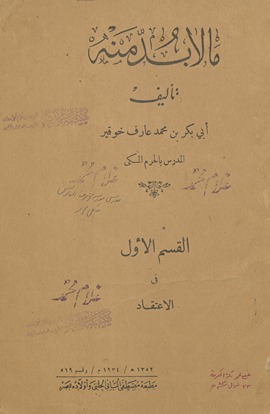 مالا بد منه
تأليف
أبي بكر بن محمد عارف خوقير
المدرس بالحرم المكي
غلام محمد
غلام محمد
القسم الأول
في
غلام محمد
الاعتقاد
١٣٥٢ هـ / ١٩٣٤ م / رقم ٥١٩
مطبعة مصطفى البابي الحلبي وأولاده بمصر